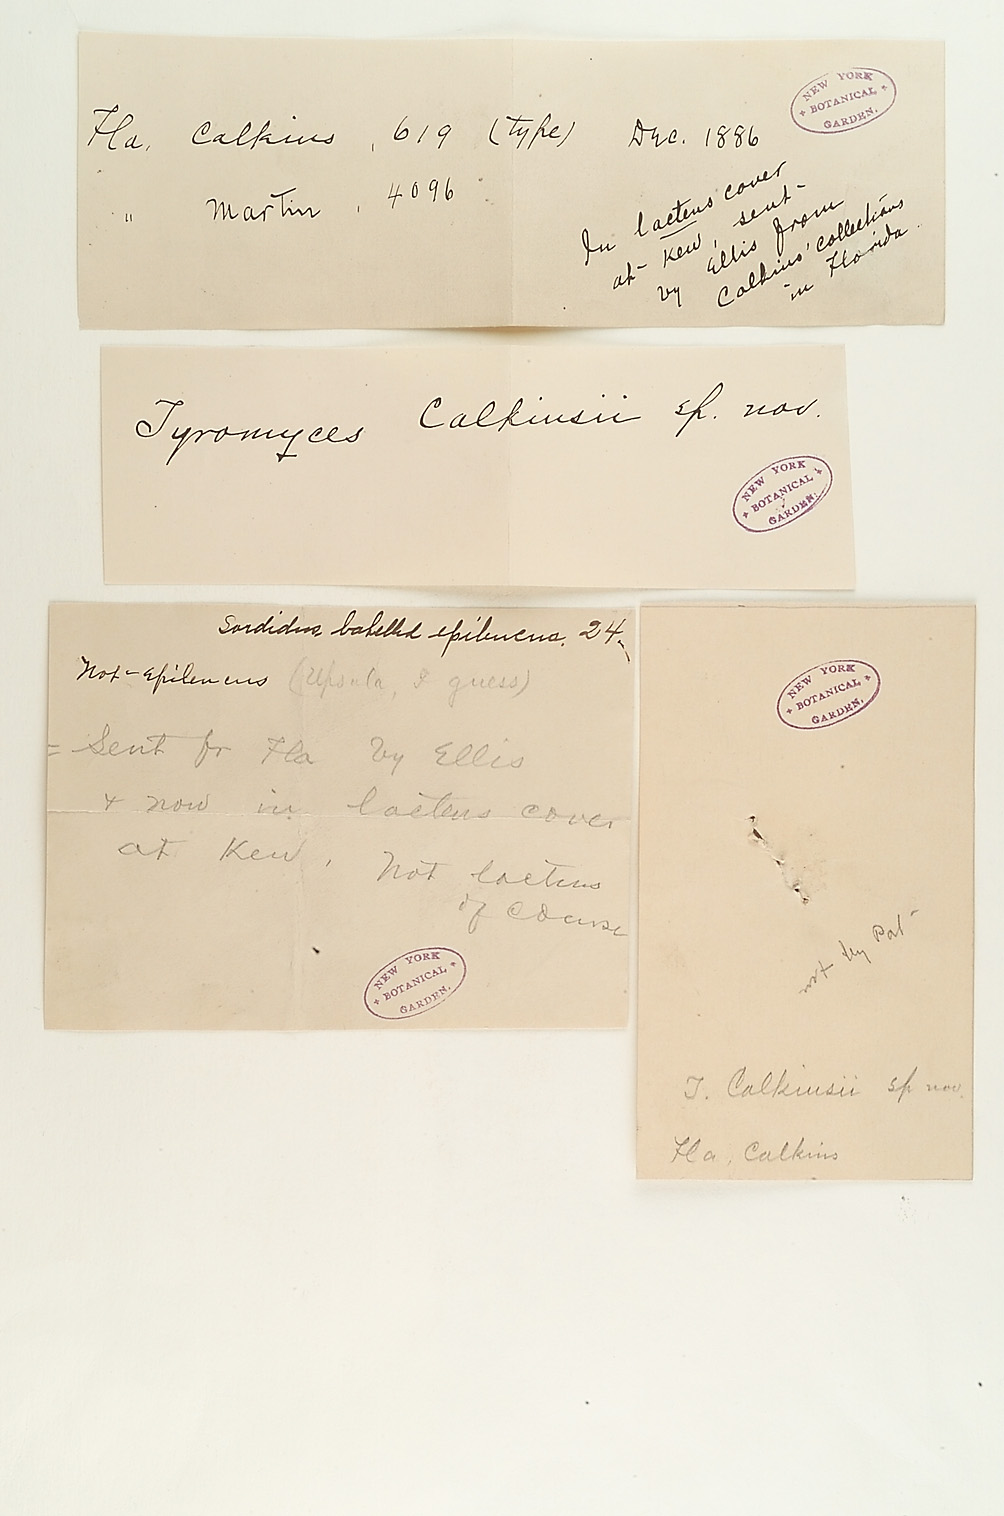 NEW YORK
* BOTANICAL *
GARDEN.
Fla. Calkins, 619 (type) Dec. 1886
" Martin, 4096
In lacteus cover
at Kew, sent
by Ellis from
Calkins' collections
in Florida.
Tyromyces Calkinsii sp. nov.
NEW YORK
* BOTANICAL *
GARDEN.
Sordidus labelled epileucus. 24.
Not epileucus (Upsala, I guess)
= Sent fr Fla by Ellis
& now in lacteus cover
at Kew. Not lacteus
of course
NEW YORK
* BOTANICAL *
GARDEN.
NEW YORK
* BOTANICAL *
GARDEN.
not by Pat
T. Calkinsii sp nov.
Fla. Calkins